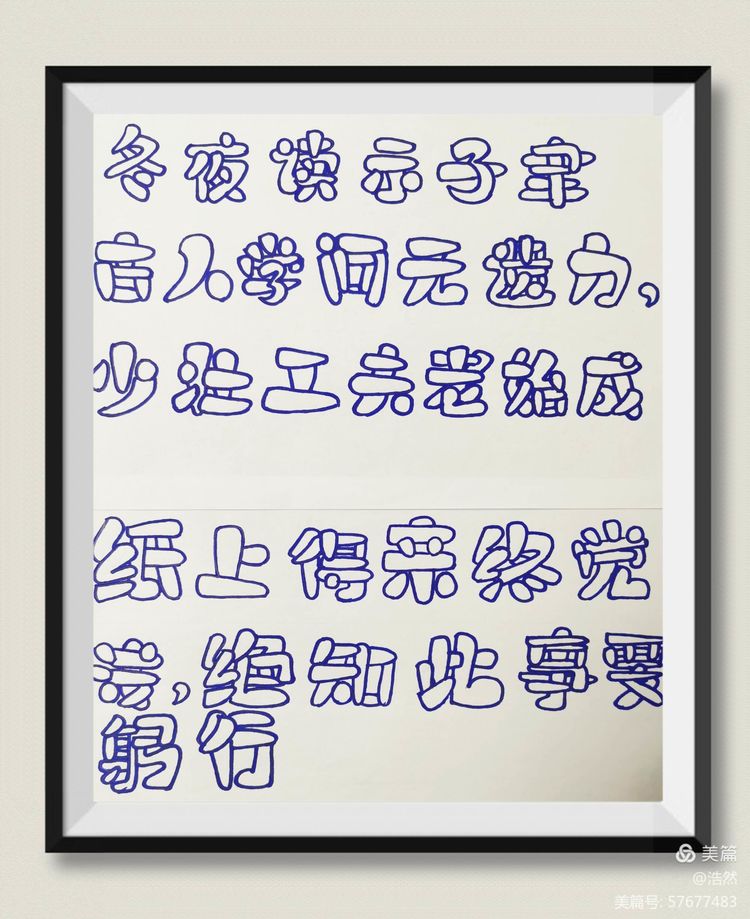 冬夜读示子聿
古人学问无遗力,
少壮工夫老始成
纸上得来终觉
浅,绝知此事要
躬行
美篇
@浩然
美篇号: 57677483